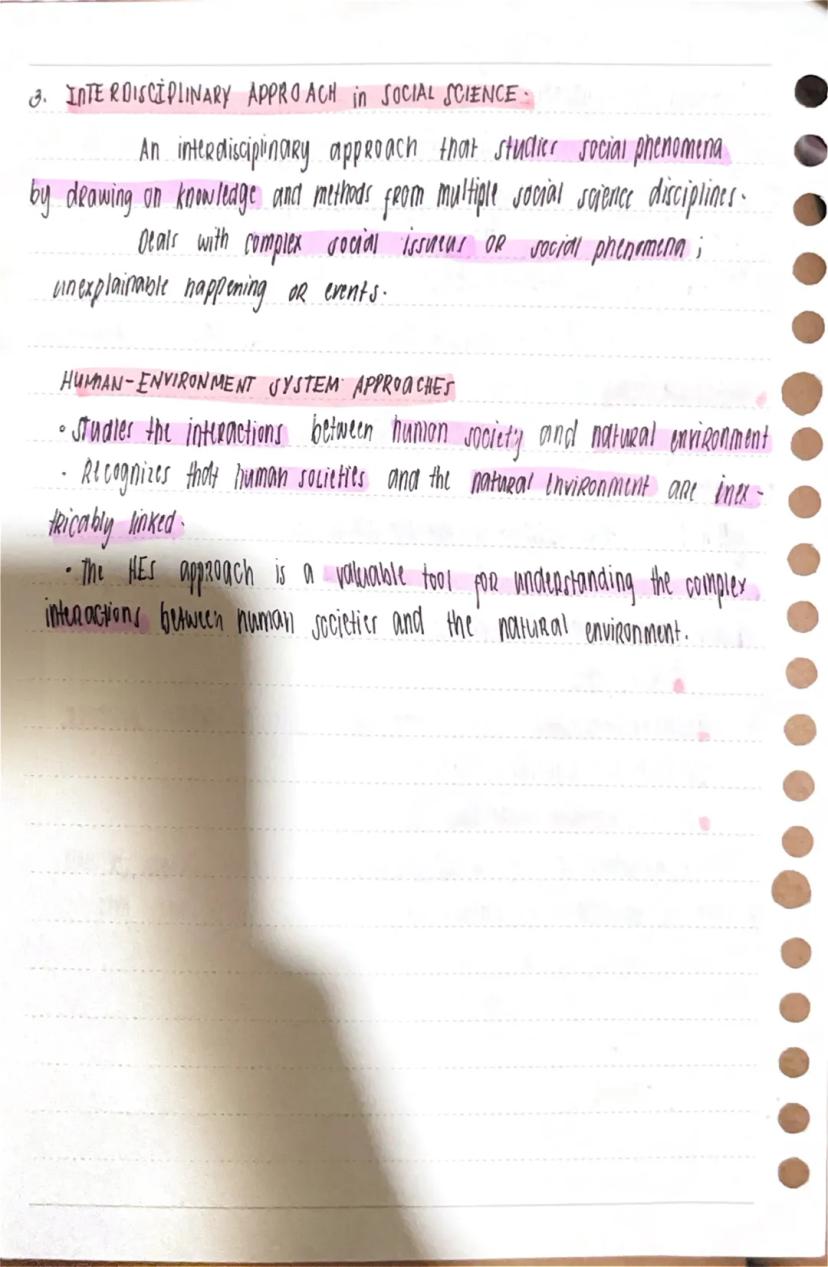 3. INTERDISCIPLINARY APPROACH in SOCIAL SCIENCE.
An interdisciplinary approach that studies social phenomena
by drawing on knowledge and methods from multiple social science disciplines.
Deals with complex social issueus OR social phenomena ;
unexplainable happening OR events.
HUMAN-ENVIRONMENT SYSTEM APPROACHES
• Studies the interactions between human society and natural environment
• Recognizes that human societies and the natural Environment are inex-
tricably linked.
• The HES approach is a valuable tool for understanding the complex
interactions between human societies and the natural environment.